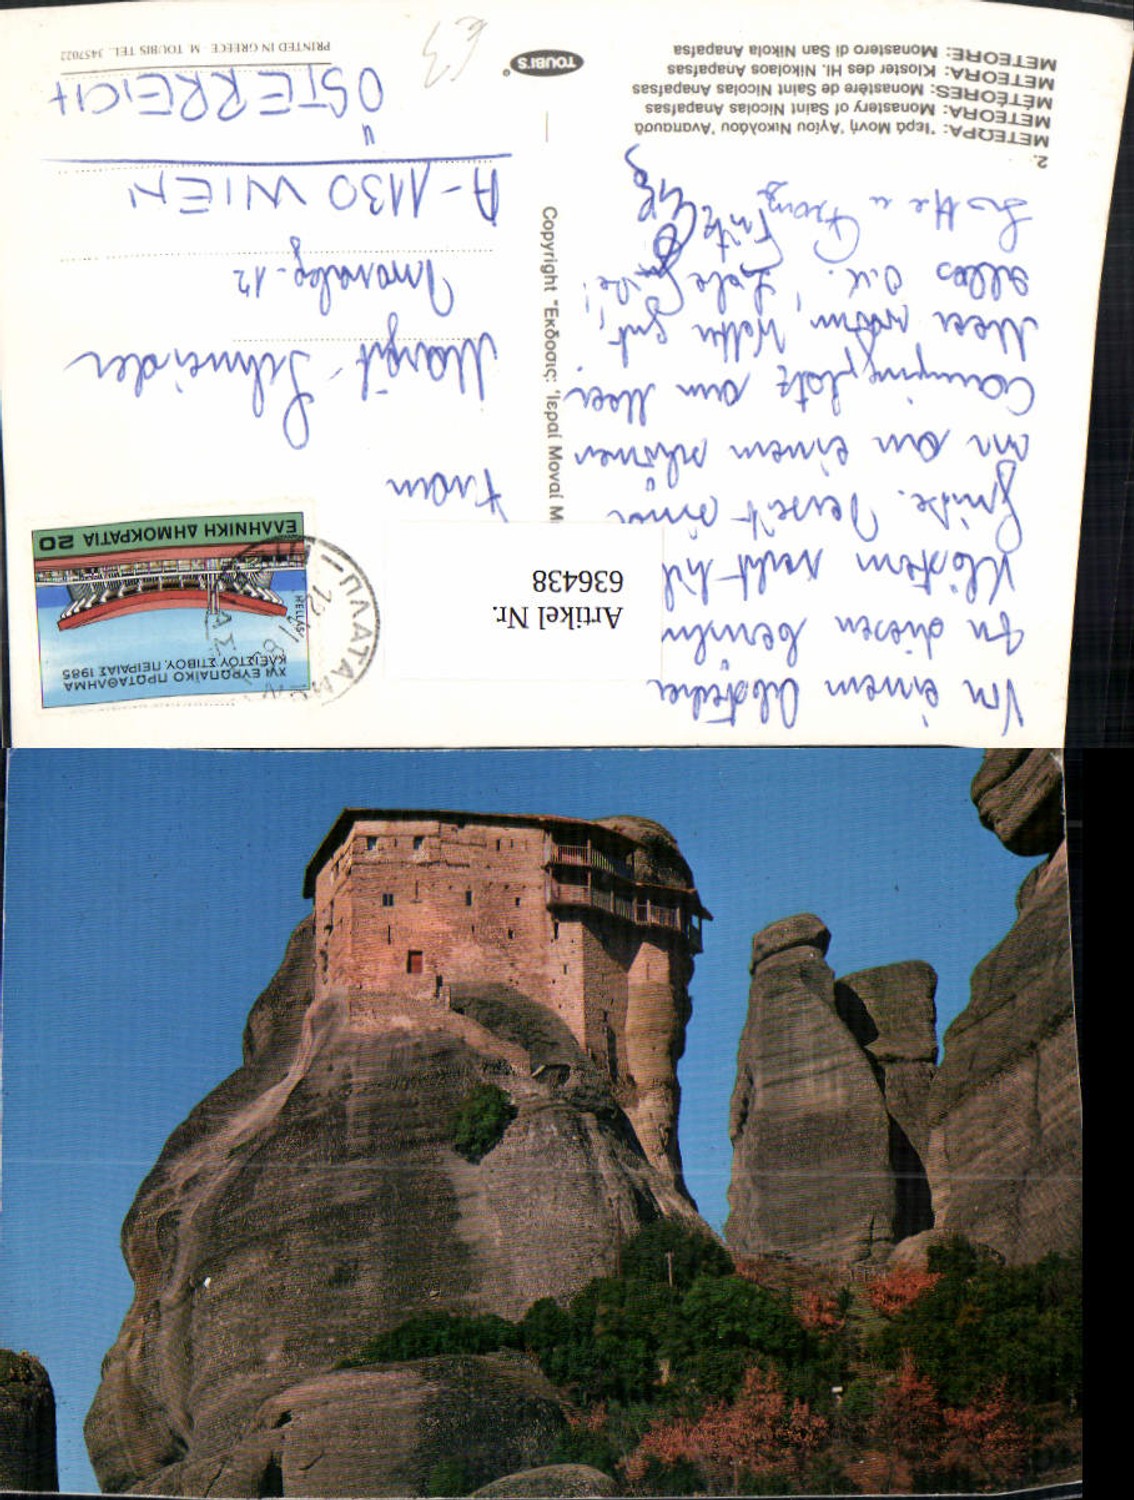 2.
ΜΕΤΕΩΡΑ: Ἱερά Μονή Ἁγίου Νικολάου Ἀναπαυσᾶ
METEORA: Monastery of Saint Nicolas Anapafsas
MÉTÉORES: Monastère de Saint Nicolas Anapafsas
METEORA: Kloster des Hl. Nikolaos Anapafsas
METEORE: Monastero di San Nikola Anapafsa
TOUBI'S
PRINTED IN GREECE - M. TOUBIS TEL. 3457022
Copyright "Εκδοσις: Ἱεραί Μοναί Μ
Von einem Abstecher
zu diesen berühmten
Klöstern recht lbl.
Grüße. Derzeit sind
wir an einem schönen
Campingplatz am Meer.
Meer warm, Wetter gut,
alles O.K. Liebe Grüße!
Lotte u Franz
Fritz
XVI ΕΥΡΩΠΑΪΚΟ ΠΡΩΤΑΘΛΗΜΑ
ΚΛΕΙΣΤΟΥ ΣΤΙΒΟΥ. ΠΕΙΡΑΙΑΣ 1985
HELLAS
ΕΛΛΗΝΙΚΗ ΔΗΜΟΚΡΑΤΙΑ 20
ΠΛΑΤΑΜ
Artikel Nr.
636438
Frau
Margit Schneider
12
A-1130 WIEN
ÖSTERREICH